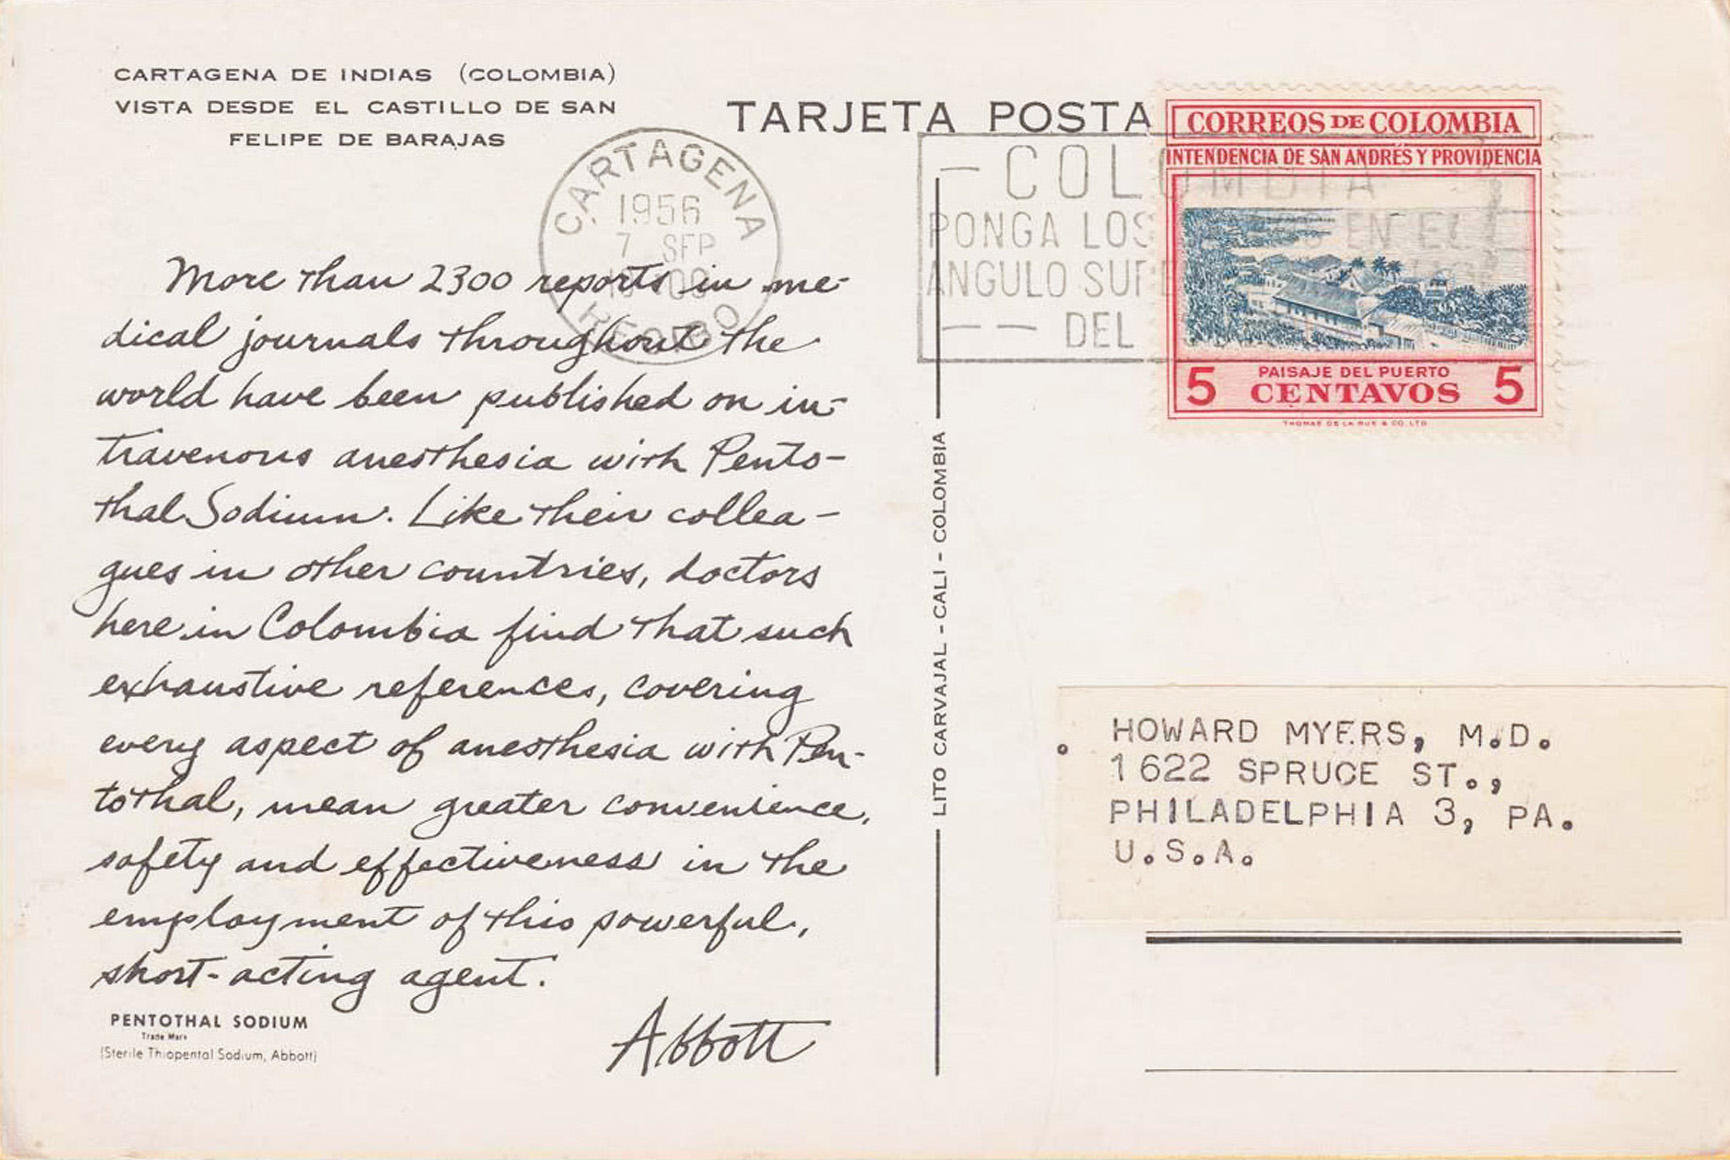 CARTAGENA DE INDIAS (COLOMBIA)
VISTA DESDE EL CASTILLO DE SAN
FELIPE DE BARAJAS
TARJETA POSTA
CARTAGENA
1956
7 SEP
RECIBO
COLOMBIA
PONGA LOS EN EL
ANGULO
DEL
CORREOS DE COLOMBIA
INTENDENCIA DE SAN ANDRÉS Y PROVIDENCIA
PAISAJE DEL PUERTO
5 CENTAVOS 5
THOMAS DE LA RUE & CO. LTD.
More than 2300 reports in me-
dical journals throughout the
world have been published on in-
travenous anesthesia with Pento-
thal Sodium. Like their collea-
gues in other countries, doctors
here in Colombia find that such
exhaustive references, covering
every aspect of anesthesia with Pen-
tothal, mean greater convenience,
safety and effectiveness in the
employment of this powerful,
short-acting agent.
Abbott
PENTOTHAL SODIUM
Trade Mark
(Sterile Thiopental Sodium, Abbott)
LITO CARVAJAL - CALI - COLOMBIA
HOWARD MYERS, M.D.
1622 SPRUCE ST.,
PHILADELPHIA 3, PA.
U.S.A.